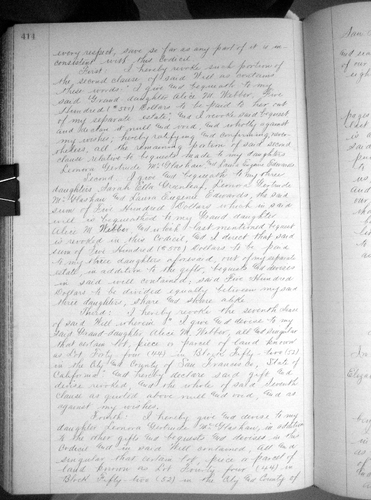 414
every respect, save so far as any part of it is in-
consistent with this Codicil.
First: I hereby revoke such portion of
the second clause of said Will as contains
these words: "I give and bequeath to my
said Grand daughter Alice M. Webber, Five
Hundred ($500) Dollars to be paid to her out
of my separate estate," and I revoke said bequest
and declare it null and void, and wholly against
my wishes, hereby ratifying and confirming, never-
theless, all the remaining portion of said second
clause relative to bequests made to my daughters
Lenora Gertrude McGlashan, and Laura Eugenia Edwards
Second: I give and bequeath to my three
daughters, Sarah Ella Greenleaf, Lenora Gertrude
McGlashan and Laura Eugenia Edwards, the said
sum of Five Hundred Dollars which in said
will is bequeathed to my Grand daughter
Alice M. Webber, and which last mentioned bequest
is revoked in this Codicil, and I direct that said
sum of Five Hundred ($500) Dollars to be paid
to my three daughters aforesaid, out of my separate
estate, in addition to the gifts, bequests and devises
in said will contained, said Five Hundred
Dollars to be divided equally between my said
three daughters, share and share alike.
Third: I hereby revoke the seventh clause
of said Will wherein "I give and devise to my
said Grand daughter Alice M. Webber, all and singular
that certain lot, piece or parcel of land known
as Lot Forty four (44) in Block Fifty-two (52)
in the City and County of San Francisco, State of
California" and hereby declare said gift and
devise revoked, and the whole of said Seventh
clause as quoted above null and void, and as
against my wishes.
Fourth: I hereby give and devise to my
daughter Lenora Gertrude McGlashan, in addition
to the other gifts and bequests and devises in this
Codicil and in said Will contained, all and
singular that certain lot, piece or parcel of
land known as Lot Forty four (44) in
Block Fifty-two (52) in the City and County of